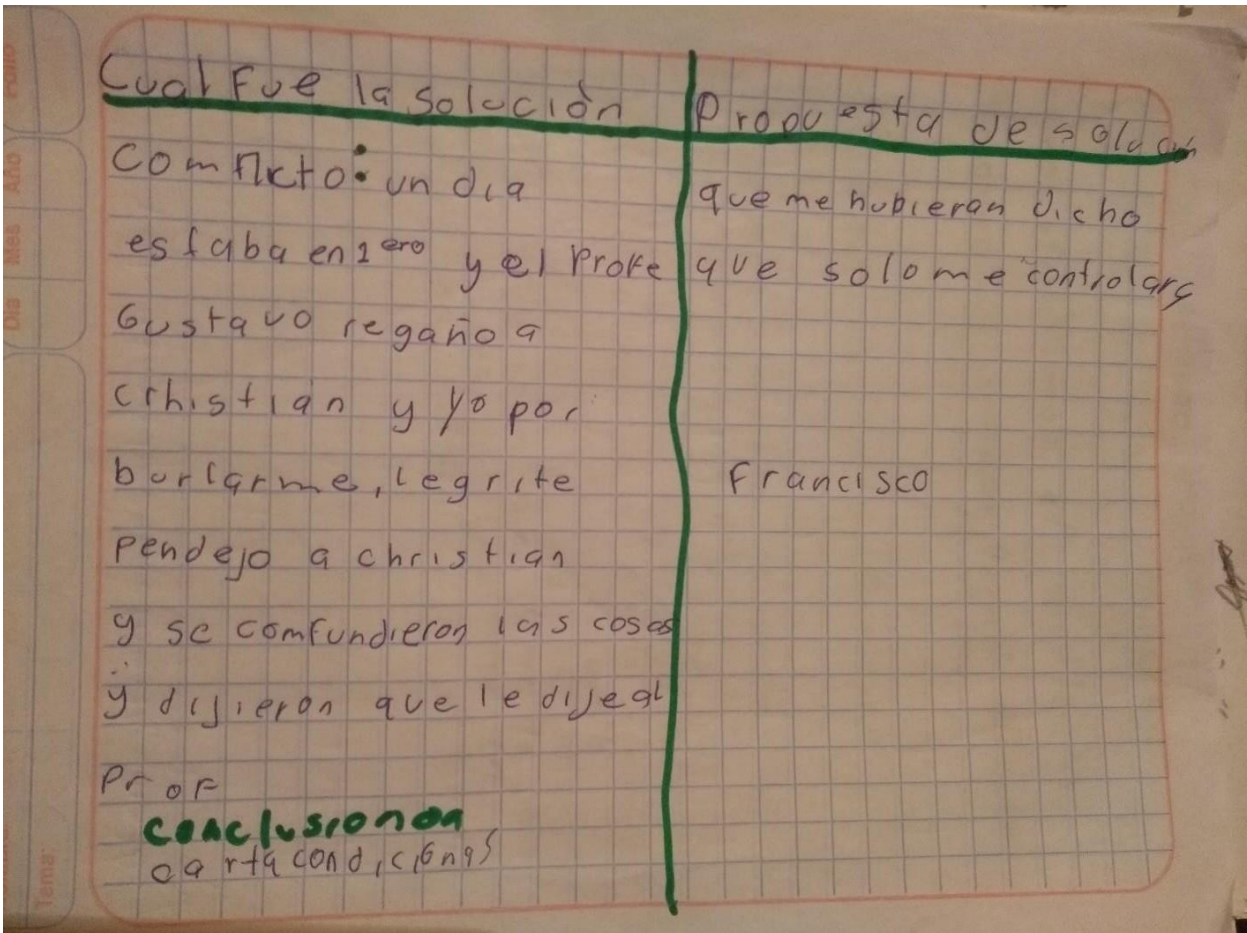 Cual Fue la Solución
Comflicto: un dia
estaba en 1ero y el Profe
Gustavo regaño a
crhistian y yo por
burlarme, le grite
Pendejo a christian
y se comfundieron las cosas
y dijieron que le dije al
Prof
conclusion
carta condicional
Propuesta de solucion
que me hubieran dicho
que solo me controlara
Francisco
Dia Mes Año
Folio
Tema: